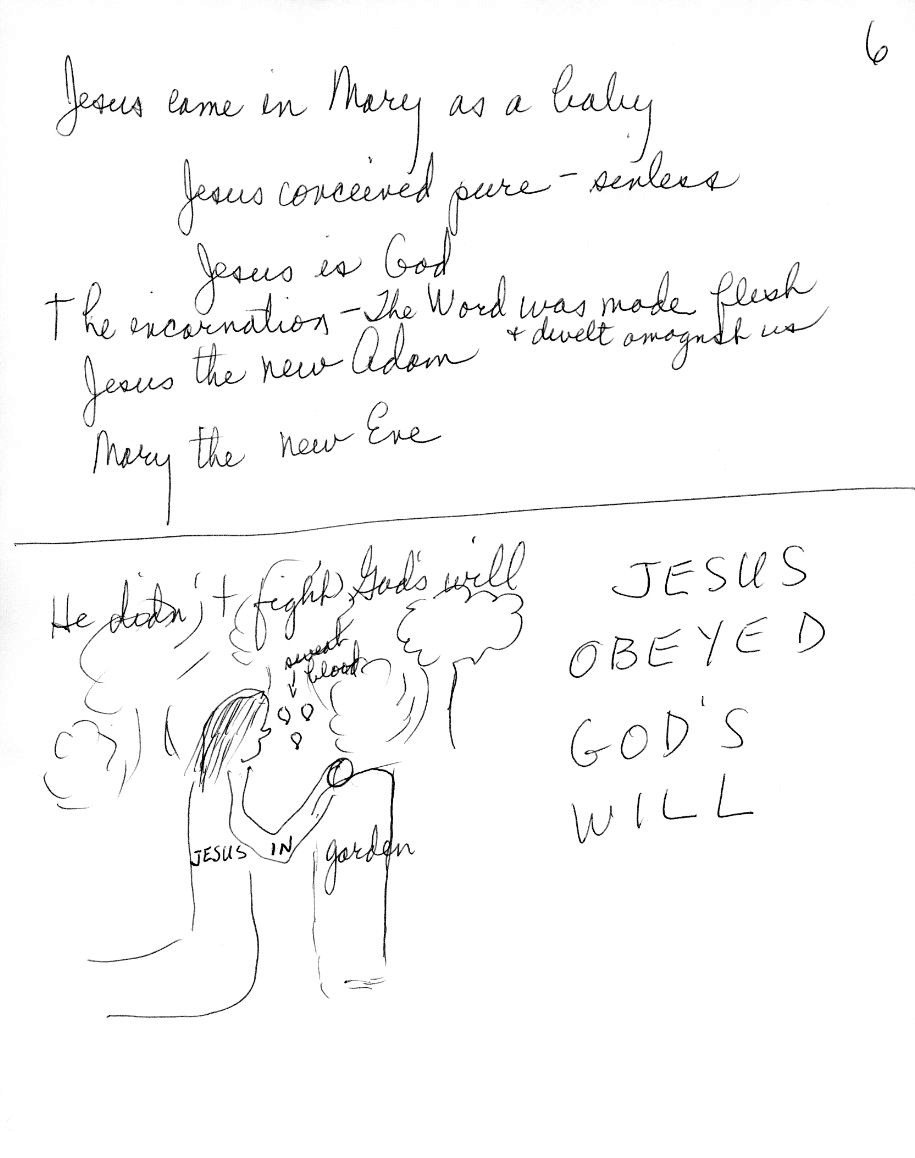 6
Jesus came in Mary as a baby
Jesus conceived pure - sinless
Jesus is God
The incarnation - The Word was made flesh
+ dwelt amognst us
Jesus the new Adam
Mary the new Eve
He didn't fight God's will
sweat
blood
JESUS IN garden
JESUS
OBEYED
GOD'S
WILL